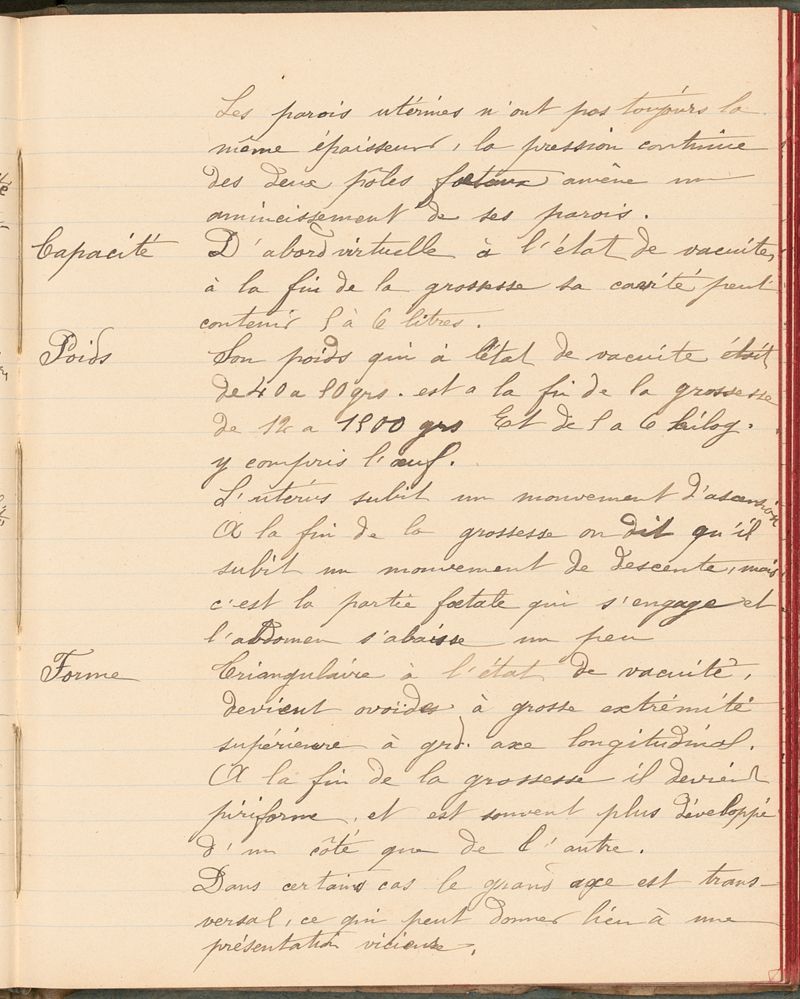 Les parois utérines n'ont pas toujours la
même épaisseur, la pression continue
des deux pôles foetaux amène un
amincissement de ses parois.
Capacité D'abord virtuelle à l'état de vacuité,
à la fin de la grossesse sa cavité peut
contenir 5 à 6 litres.
Poids Son poids qui à l'état de vacuite était
de 40 a 50 grs. est a la fin de la grossesse
de 12 a 1500 grs Et de 5 a 6 kilog.
y compris l'œuf.
L'utérus subit un mouvement d'ascension
A la fin de la grossesse on dit qu'il
subit un mouvement de descente, mais
c'est la partie fœtale qui s'engage et
l'abdomen s'abaisse un peu
Forme Triangulaire à l'état de vacuité,
devient ovoïde, à grosse extrémité
supérieure à grd. axe longitudinal.
A la fin de la grossesse il devient
piriforme, et est souvent plus développé
d'un côté que de l'autre.
Dans certains cas le grand axe est trans-
versal, ce qui peut donner lieu à une
présentation vicieuse.